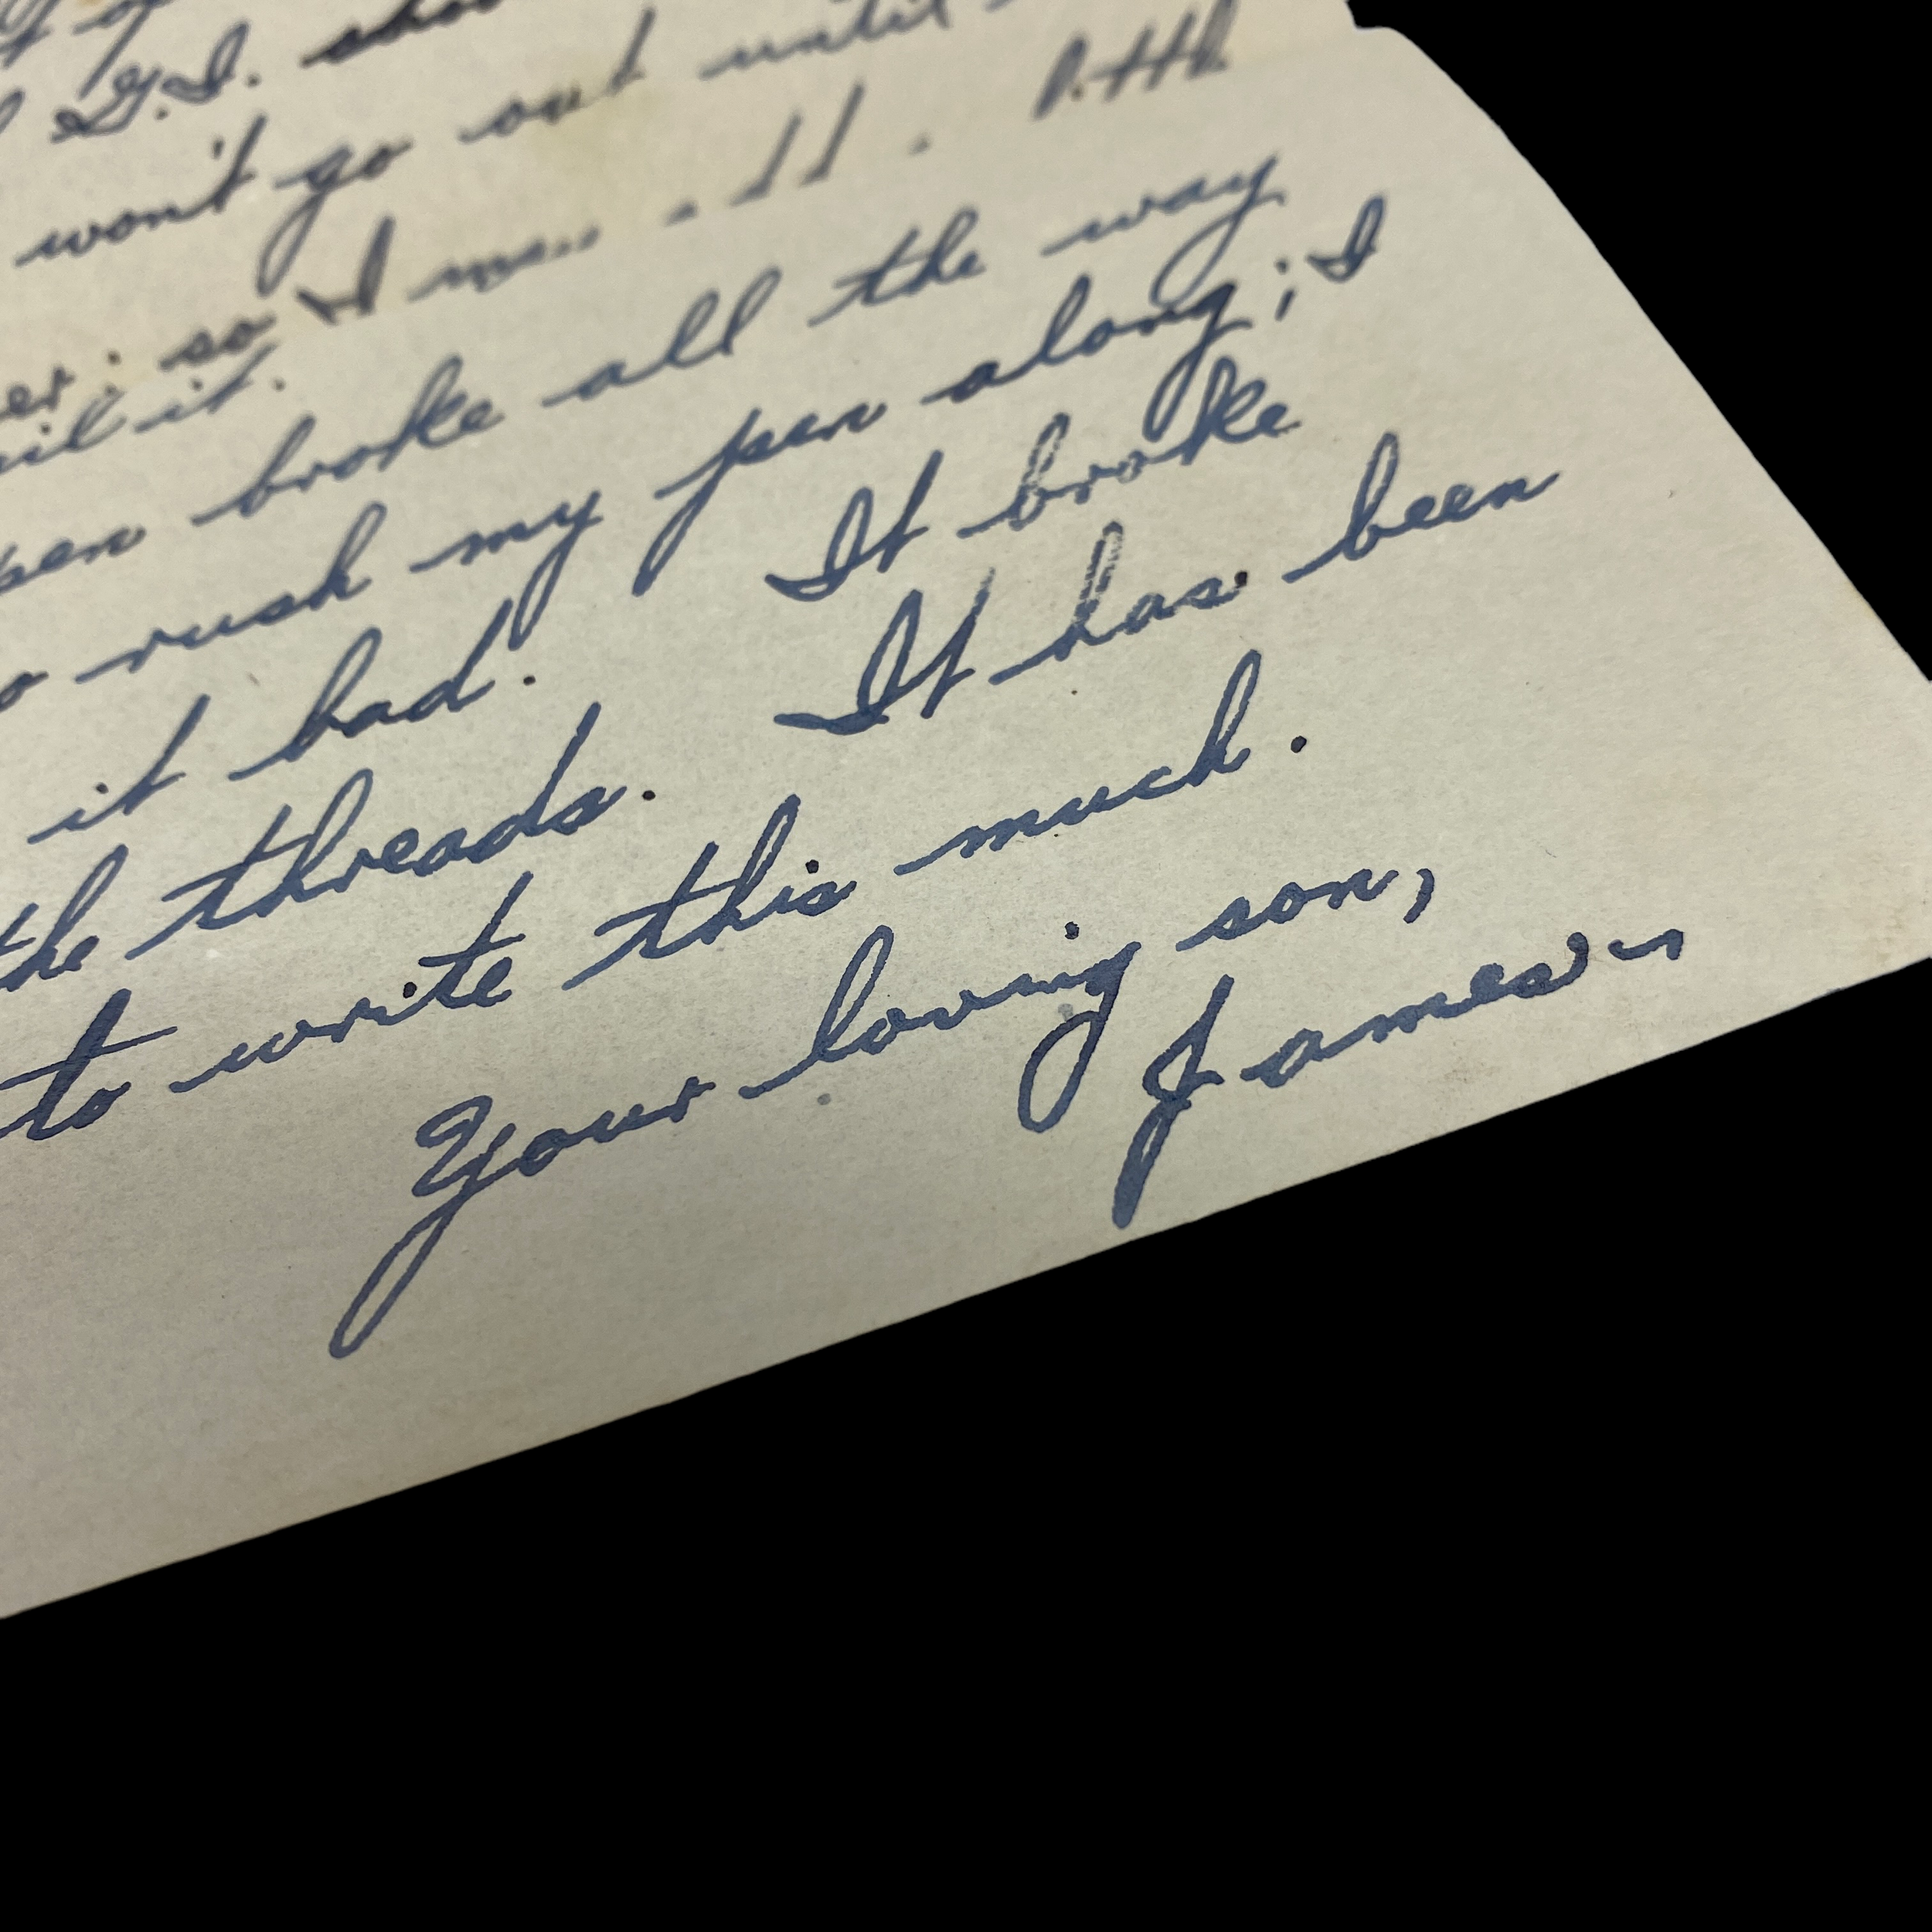 G.I.
won't go out until
so I
it.
pen broke all the way
rush my pen along; I
it bad. It broke
the threads. It has been
to write this much.
Your loving son,
James ~